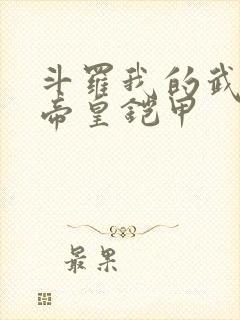 斗羅我的武
帝皇鎧甲
最果